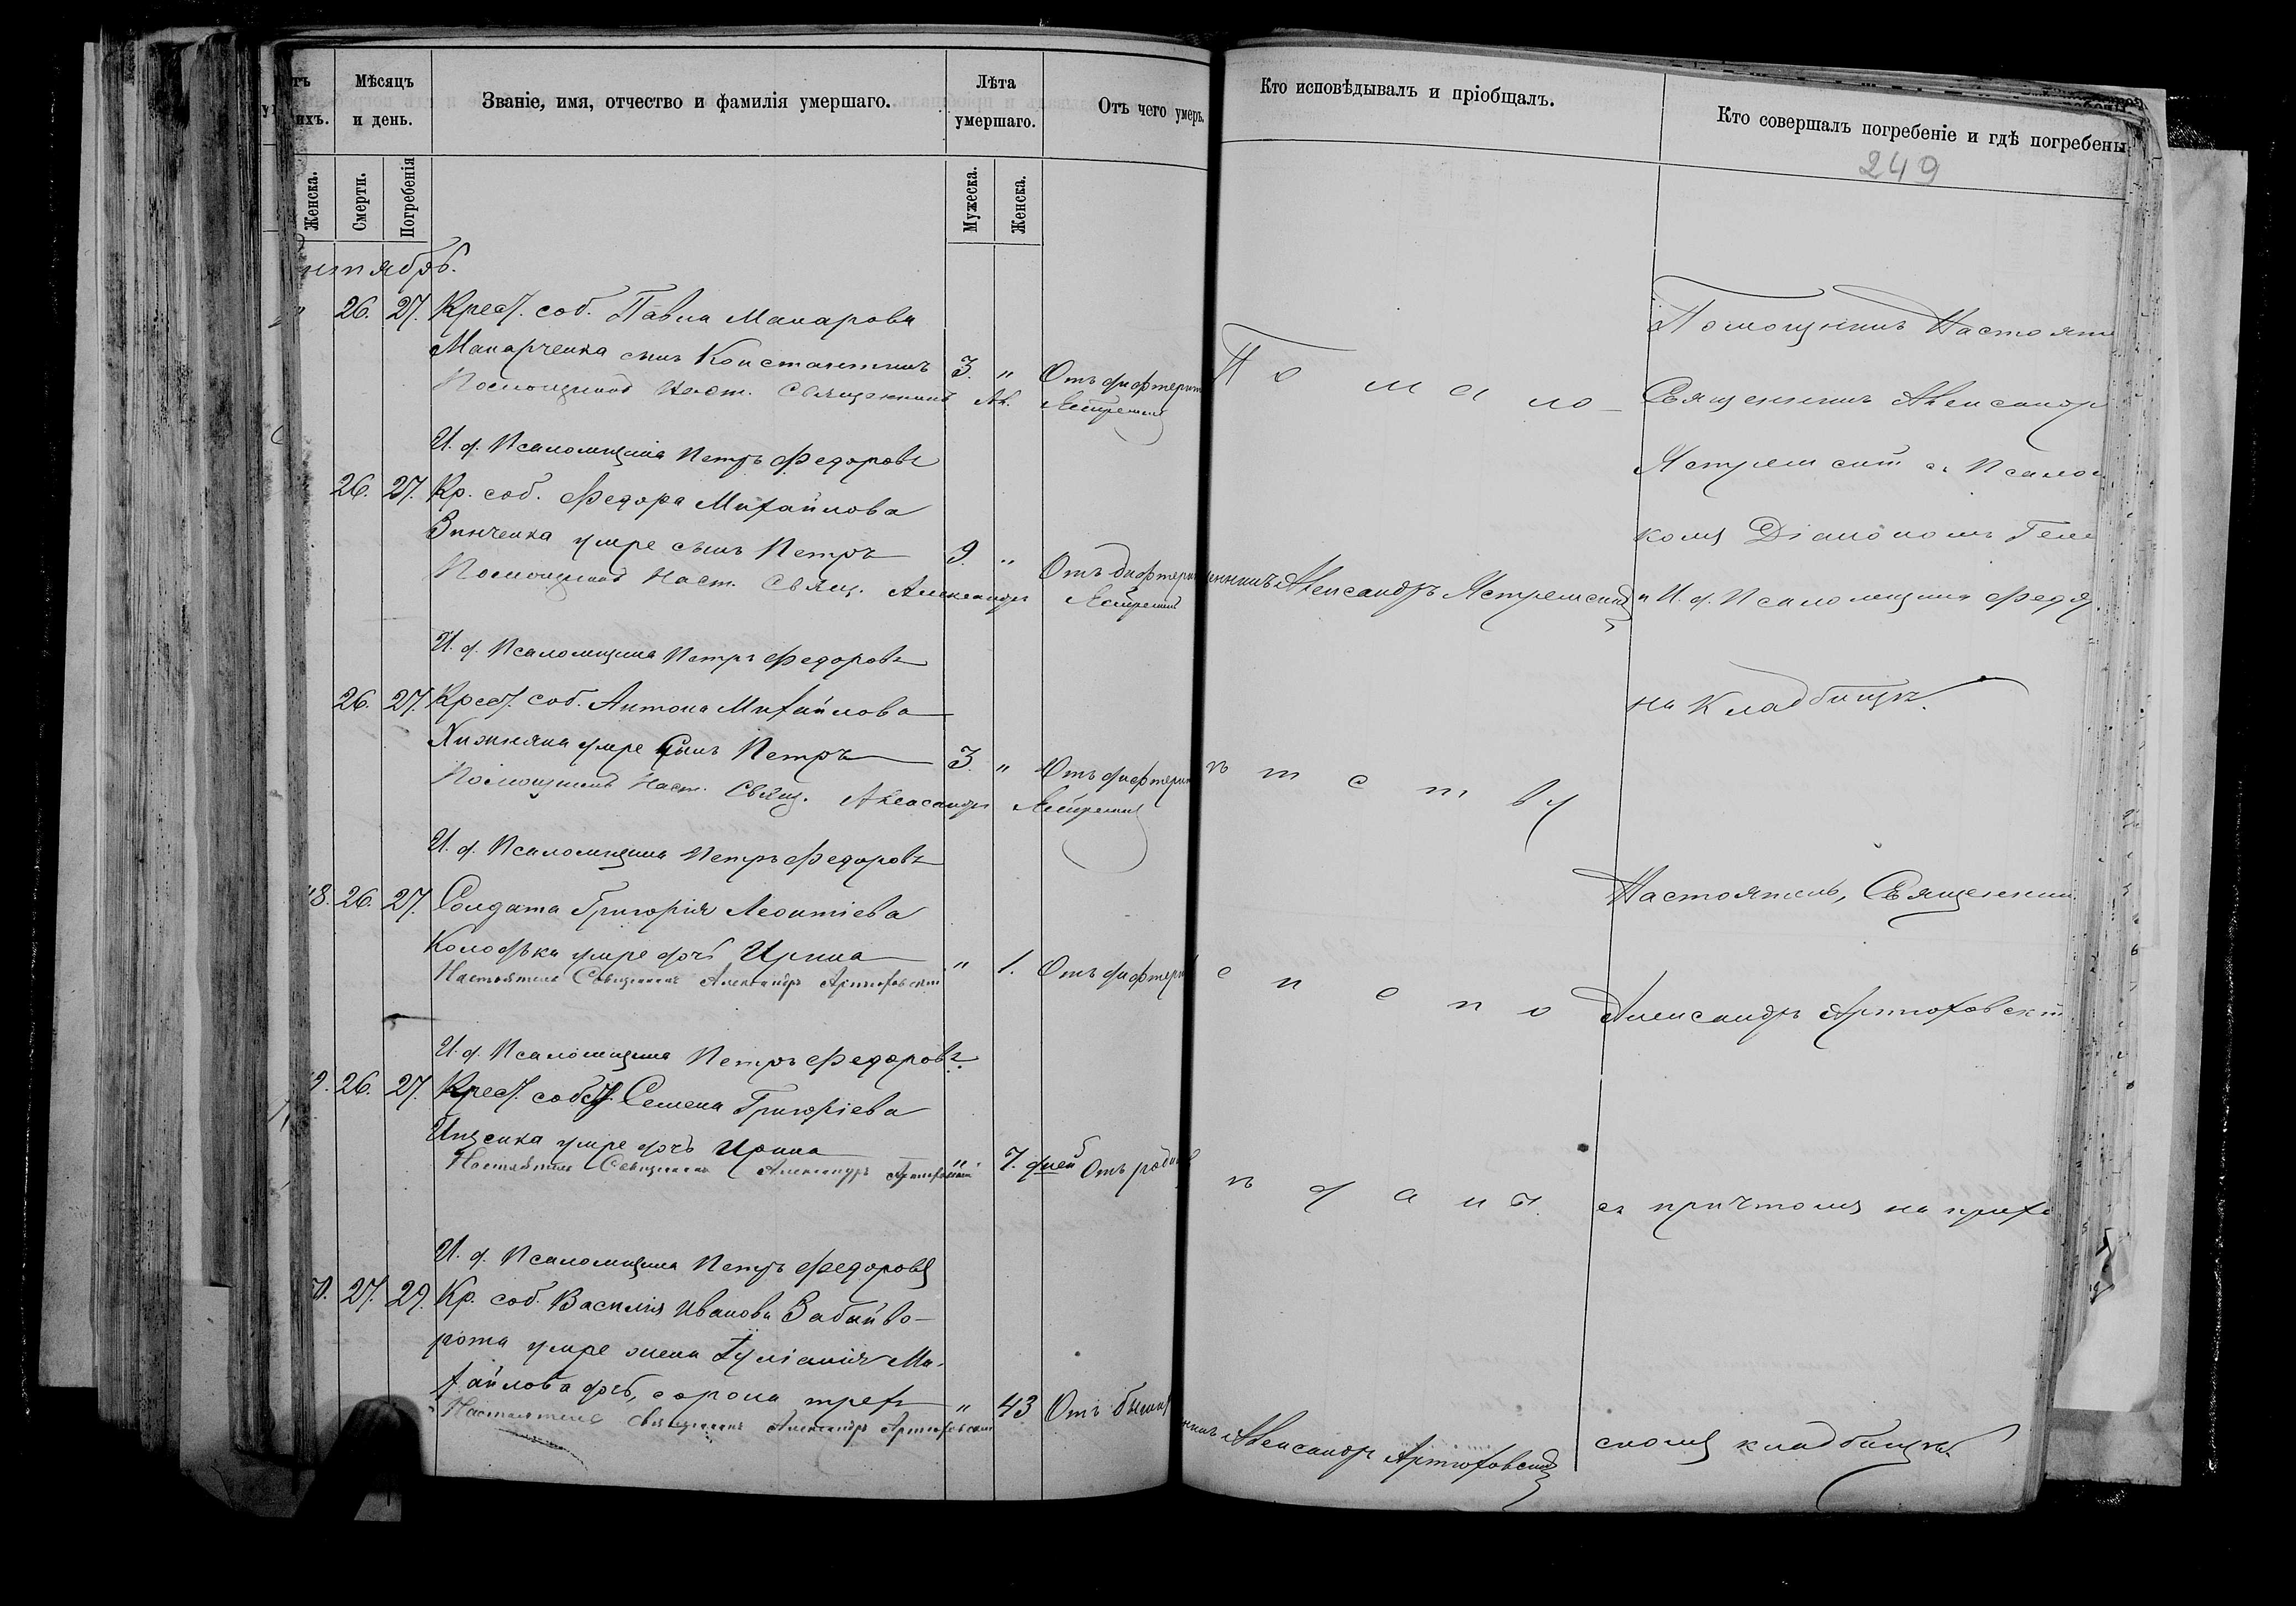 Мѣсяцъ и день.
Званіе, имя, отчество и фамилія умершаго.
Лѣта умершаго.
Отъ чего умеръ.
Кто исповѣдывалъ и пріобщалъ.
Кто совершалъ погребеніе и гдѣ погребены.
249
Женска.
Смерти.
Погребенія
Мужеска.
Женска.
нтябрь.
26. 27. Крест. соб. Павла Макарова
Макарченка сынъ Константинъ 3. " Отъ дифтерит
Помощникъ Наст. Священникъ Ал. Ястремскій
И. д. Псаломщика Петръ Федоровъ
26. 27. Кр. соб. Федора Михайлова
Зинченка умре сынъ Петръ 9. " Отъ дифтери
Помощникъ Наст. Свящ. Александръ Ястремскій
И. д. Псаломщика Петръ Федоровъ
26. 27. Крест. соб. Антона Михайлова
Хижняка умре сынъ Петръ 3. " Отъ дифтери
Помощникъ Наст. Свящ. Александръ Ястремскій
И. д. Псаломщика Петръ Федоровъ
8. 26. 27. Солдата Григорія Леонтіева
умре дочь Ирина " 1. Отъ дифтери
Настоятель Священникъ Александръ Артюховскій
И. д. Псаломщика Петръ Федоровъ.
9. 26. 27. Крест. собст. Семена Григоріева
Ищенка умре дочь Ирина " 7. дней Отъ
Настоятель Священникъ Александръ Артюховскій
И. д. Псаломщика Петръ Федоровъ
0. 27. 29. Кр. соб. Василія Иванова Забайво-
рота умре жена Іуліанія Ми-
хайлова дочь, сорока трехъ " 43 Отъ
Настоятель Священникъ Александръ Артюховскій
По мало-
лѣтству
щенникъ Александръ Ястремскій
никъ Александръ Артюховскій
Помощникъ Настояте
Священникъ Александръ
Ястремскій съ Псалом
комъ Діакономъ
и И. д. Псаломщика Федор.
на кладбищѣ.
Настоятель, Священник
Александръ Артюховскій
съ причтомъ на прихо
скомъ кладбищѣ.